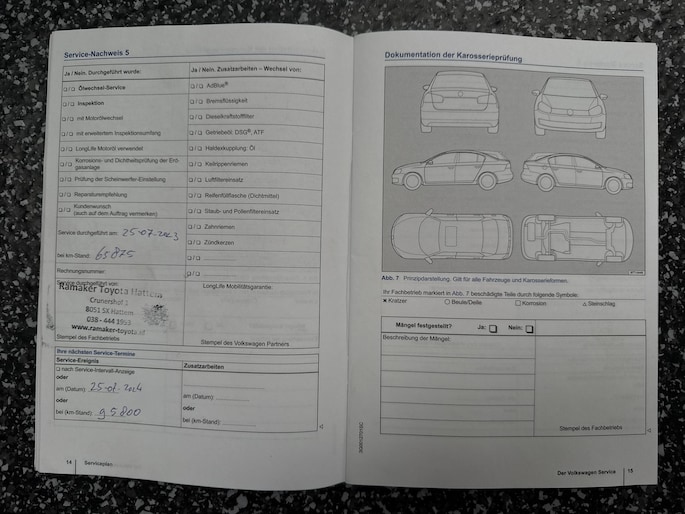 Service-Nachweis 5
Ja / Nein. Durchgeführt wurde:
❏ / ❏ Ölwechsel-Service
❏ / ❏ Inspektion
❏ / ❏ mit Motorölwechsel
❏ / ❏ mit erweitertem Inspektionsumfang
❏ / ❏ LongLife Motoröl verwendet
❏ / ❏ Korrosions- und Dichtheitsprüfung der Erd-
gasanlage
❏ / ❏ Prüfung der Scheinwerfer-Einstellung
❏ / ❏ Reparaturempfehlung
❏ / ❏ Kundenwunsch
(auch auf dem Auftrag vermerken)
Service durchgeführt am: 25-07-2023
bei km-Stand: 65875
Rechnungsnummer:
Service durchgeführt von:
Ramaker Toyota Hattem
Crunershof 1
8051 SX Hattem
038 - 444 1953
www.ramaker-toyota.nl
Stempel des Fachbetriebs
Ja / Nein. Zusatzarbeiten – Wechsel von:
❏ / ❏ AdBlue®
❏ / ❏ Bremsflüssigkeit
❏ / ❏ Dieselkraftstofffilter
❏ / ❏ Getriebeöl: DSG®, ATF
❏ / ❏ Haldexkupplung: Öl
❏ / ❏ Keilrippenriemen
❏ / ❏ Luftfiltereinsatz
❏ / ❏ Reifenfüllflasche (Dichtmittel)
❏ / ❏ Staub- und Pollenfiltereinsatz
❏ / ❏ Zahnriemen
❏ / ❏ Zündkerzen
❏ / ❏
LongLife Mobilitätsgarantie
Stempel des Volkswagen Partners
Ihre nächsten Service-Termine
Service-Ereignis
❏ nach Service-Intervall-Anzeige
oder
am (Datum): 25-07-2024
oder
bei (km-Stand): 95800
Zusatzarbeiten
am (Datum):
oder
bei (km-Stand):
14 Serviceplan
Dokumentation der Karosserieprüfung
Abb. 7 Prinzipdarstellung. Gilt für alle Fahrzeuge und Karosserieformen.
Ihr Fachbetrieb markiert in Abb. 7 beschädigte Teile durch folgende Symbole:
✕ Kratzer ○ Beule/Delle □ Korrosion △ Steinschlag
Mängel festgestellt? Ja: ❏ Nein: ❏
Beschreibung der Mängel:
Stempel des Fachbetriebs
Der Volkswagen Service 15